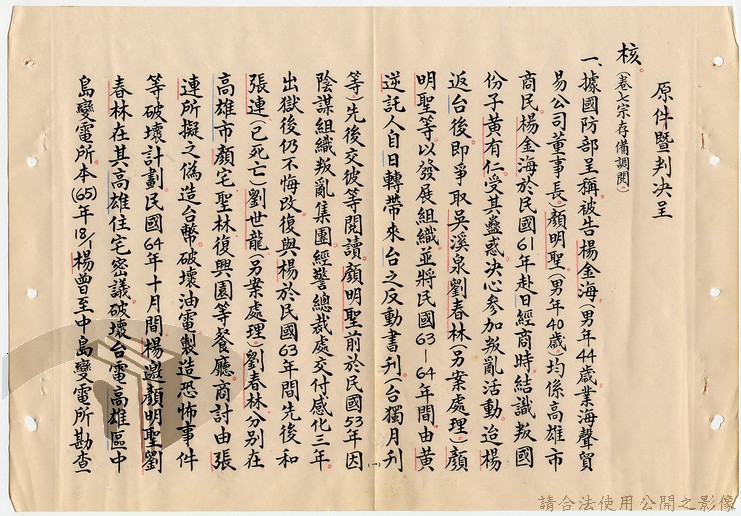 原件暨判決呈
核。(卷七宗存備調閱。)
一、據國防部呈稱被告楊金海(男年44歲業海聲貿
易公司董事長)顏明聖(男年40歲)均係高雄市
商民楊金海於民國61年赴日經商時結識叛國
份子黃有仁受其蠱惑決心參加叛亂活動迨楊
返台後即爭取吳溪泉劉春林(另案處理)顏
明聖等以發展組織並將民國63—64年間由黃
逆託人自日轉帶來台之反動書刊(台獨月刊
等)先後交彼等閱讀顏明聖前於民國53年因
陰謀組織叛亂集團經警總裁處交付感化三年
出獄後仍不悔改復與楊於民國63年間先後和
張連(已死亡)劉世龍(另案處理)劉春林分別在
高雄市顏宅聖林復興園等餐廳商討由張
連所擬之偽造台幣破壞油電製造恐怖事件
等破壞計劃民國64年十月間楊邀顏明聖劉
春林在其高雄住宅密議破壞台電高雄區中
島變電所本(65)年18/1楊曾至中島變電所勘查
(一)
請合法使用公開之影像